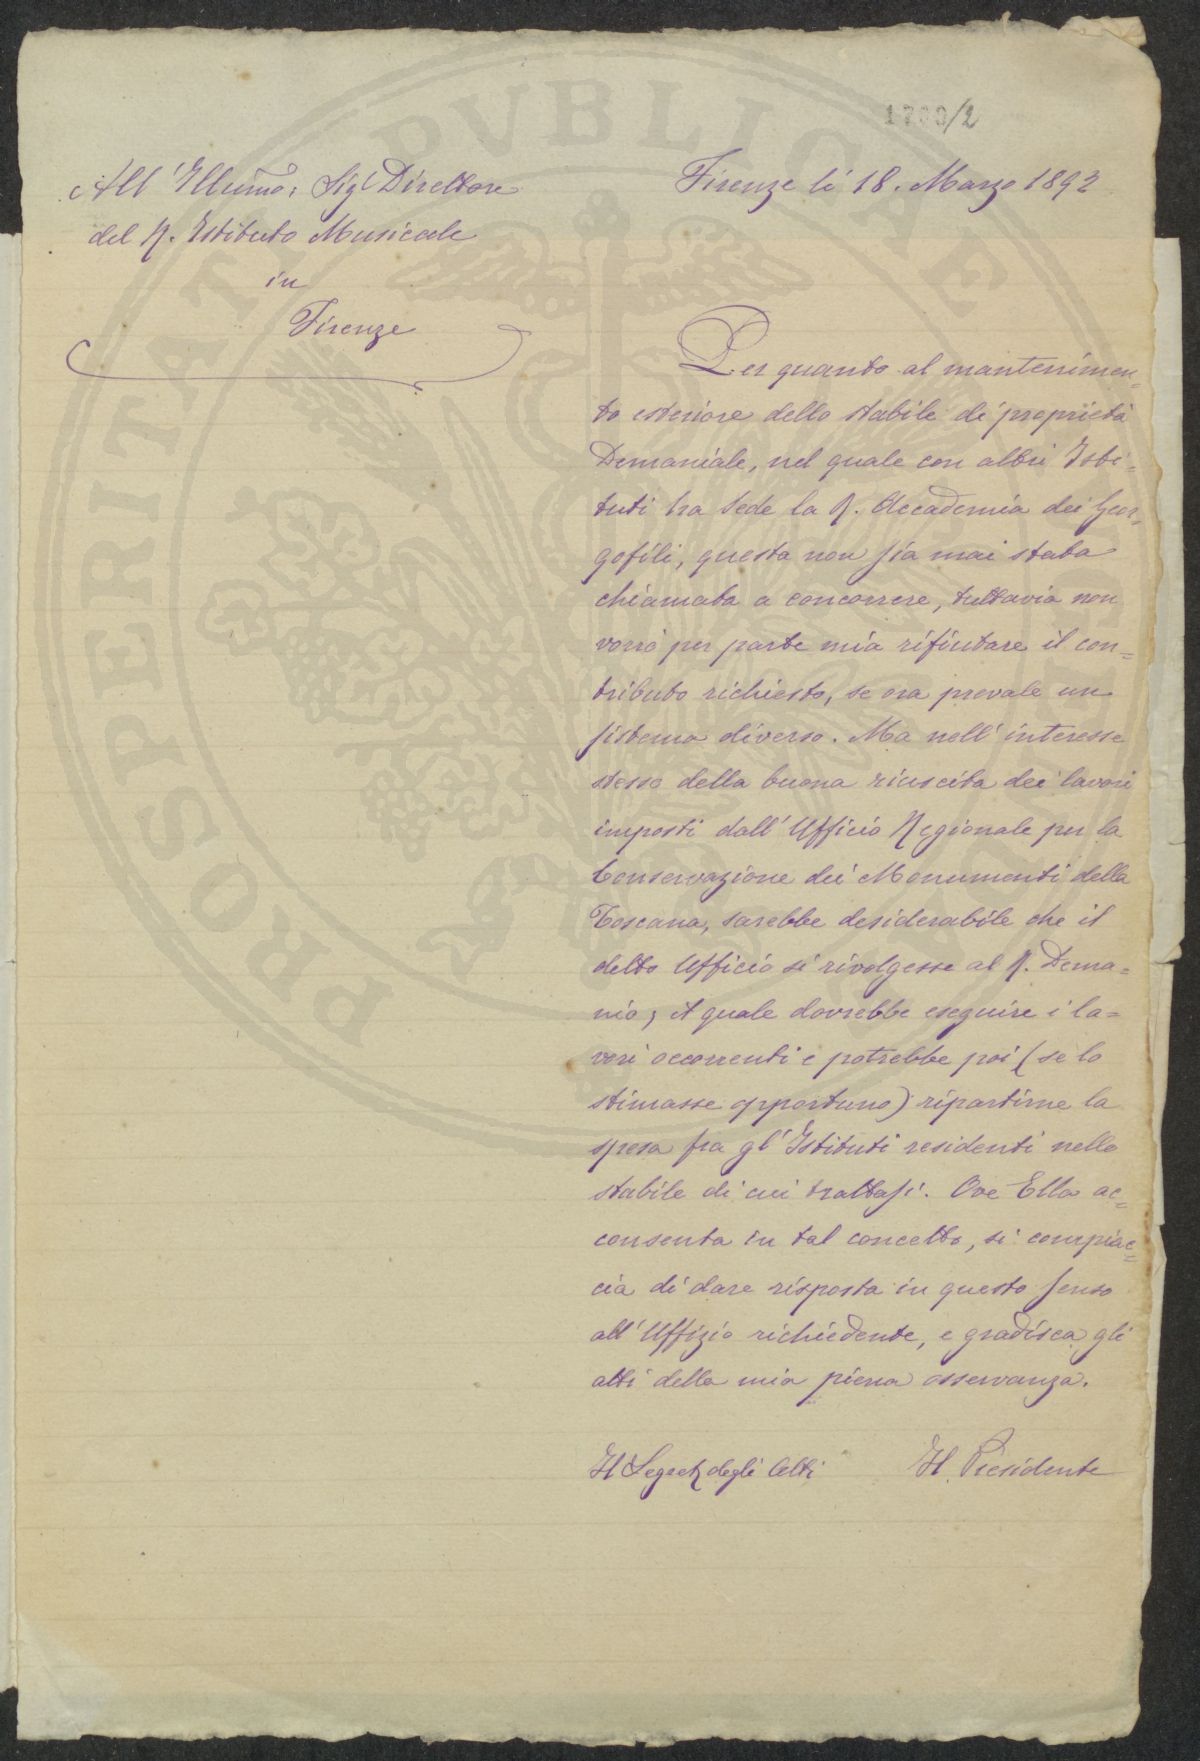 1789/2
All'Illumo: Sigr Direttore
del R. Istituto Musicale
in
Firenze
Firenze li 18. Marzo 1892
Per quanto al mantenimen=
to esteriore dello stabile di proprietà
Demaniale, nel quale con altri Isti=
tuti ha sede la R. Accademia dei Geor=
gofili, questa non sia mai stata
chiamata a concorrere, tuttavia non
vorrò per parte mia rifiutare il con=
tributo richiesto, se ora prevale un
sistema diverso. Ma nell'interesse
stesso della buona riuscita dei lavori
imposti dall'Ufficio Regionale per la
Conservazione dei Monumenti della
Toscana, sarebbe desiderabile che il
detto Ufficio si rivolgesse al R. Dema=
nio, il quale dovrebbe eseguire i la=
vori occorrenti e potrebbe poi (se lo
stimasse opportuno) ripartirne la
spesa fra gl'Istituti residenti nello
stabile di cui trattasi. Ove Ella ac=
consenta in tal concetto, si compiac=
cia di dare risposta in questo senso
all'Uffizio richiedente, e gradisca gli
atti della mia piena osservanza.
Il Segret. degli Atti
Il Presidente
PROSPERITATI PVBLICAE